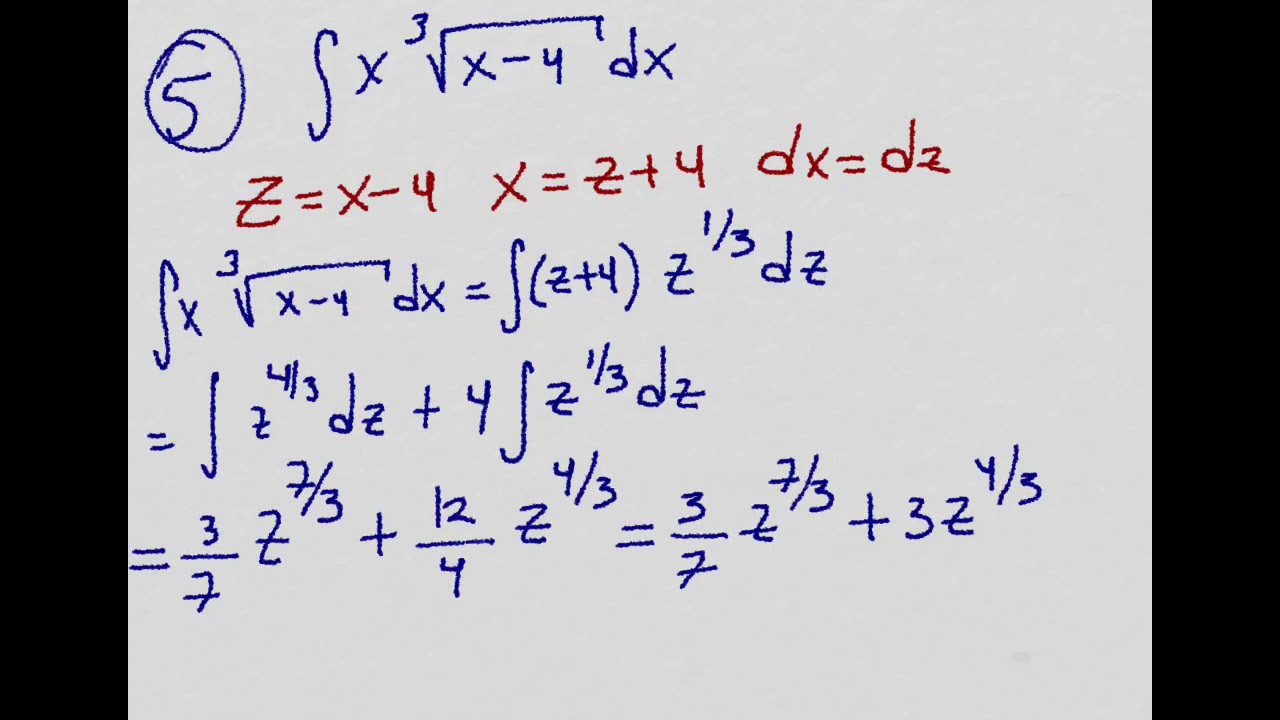 5 ∫ x ∛(x-4) dx
z = x-4 x = z+4 dx = dz
∫ x ∛(x-4) dx = ∫ (z+4) z^(1/3) dz
= ∫ z^(4/3) dz + 4 ∫ z^(1/3) dz
= 3/7 z^(7/3) + 12/4 z^(4/3) = 3/7 z^(7/3) + 3z^(4/3)